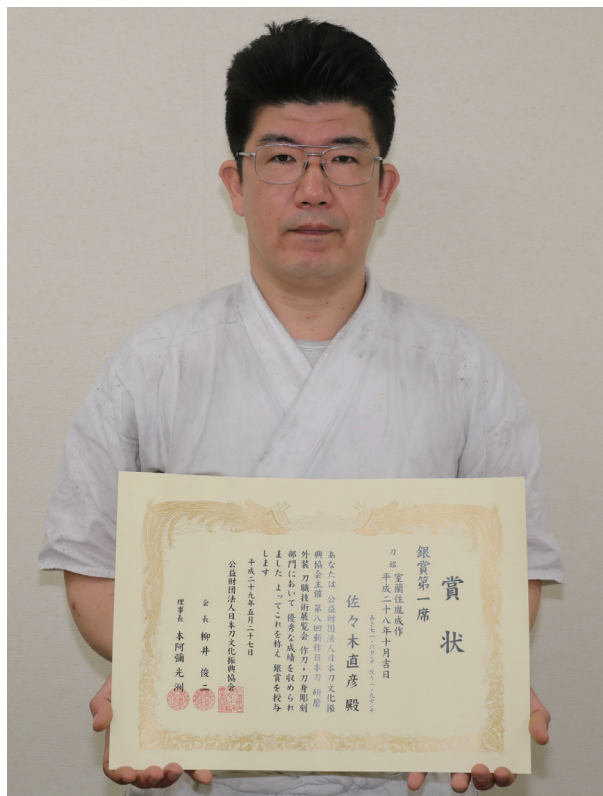 賞状
銀賞第一席
刀 銘 室蘭住胤成作
平成二十八年十月吉日
佐々木直彦 殿
あなたは 公益財団法人日本刀文化振
興協会主催 第八回新作日本刀 研磨
外装 刀職技術展覧会 作刀・刀身彫刻
部門において 優秀な成績を収められ
ました よってこれを称え 銀賞を授与
します
平成二十九年五月二十七日
公益財団法人日本刀文化振興協会
会長 柳井 俊二
理事長 本阿彌 光洲